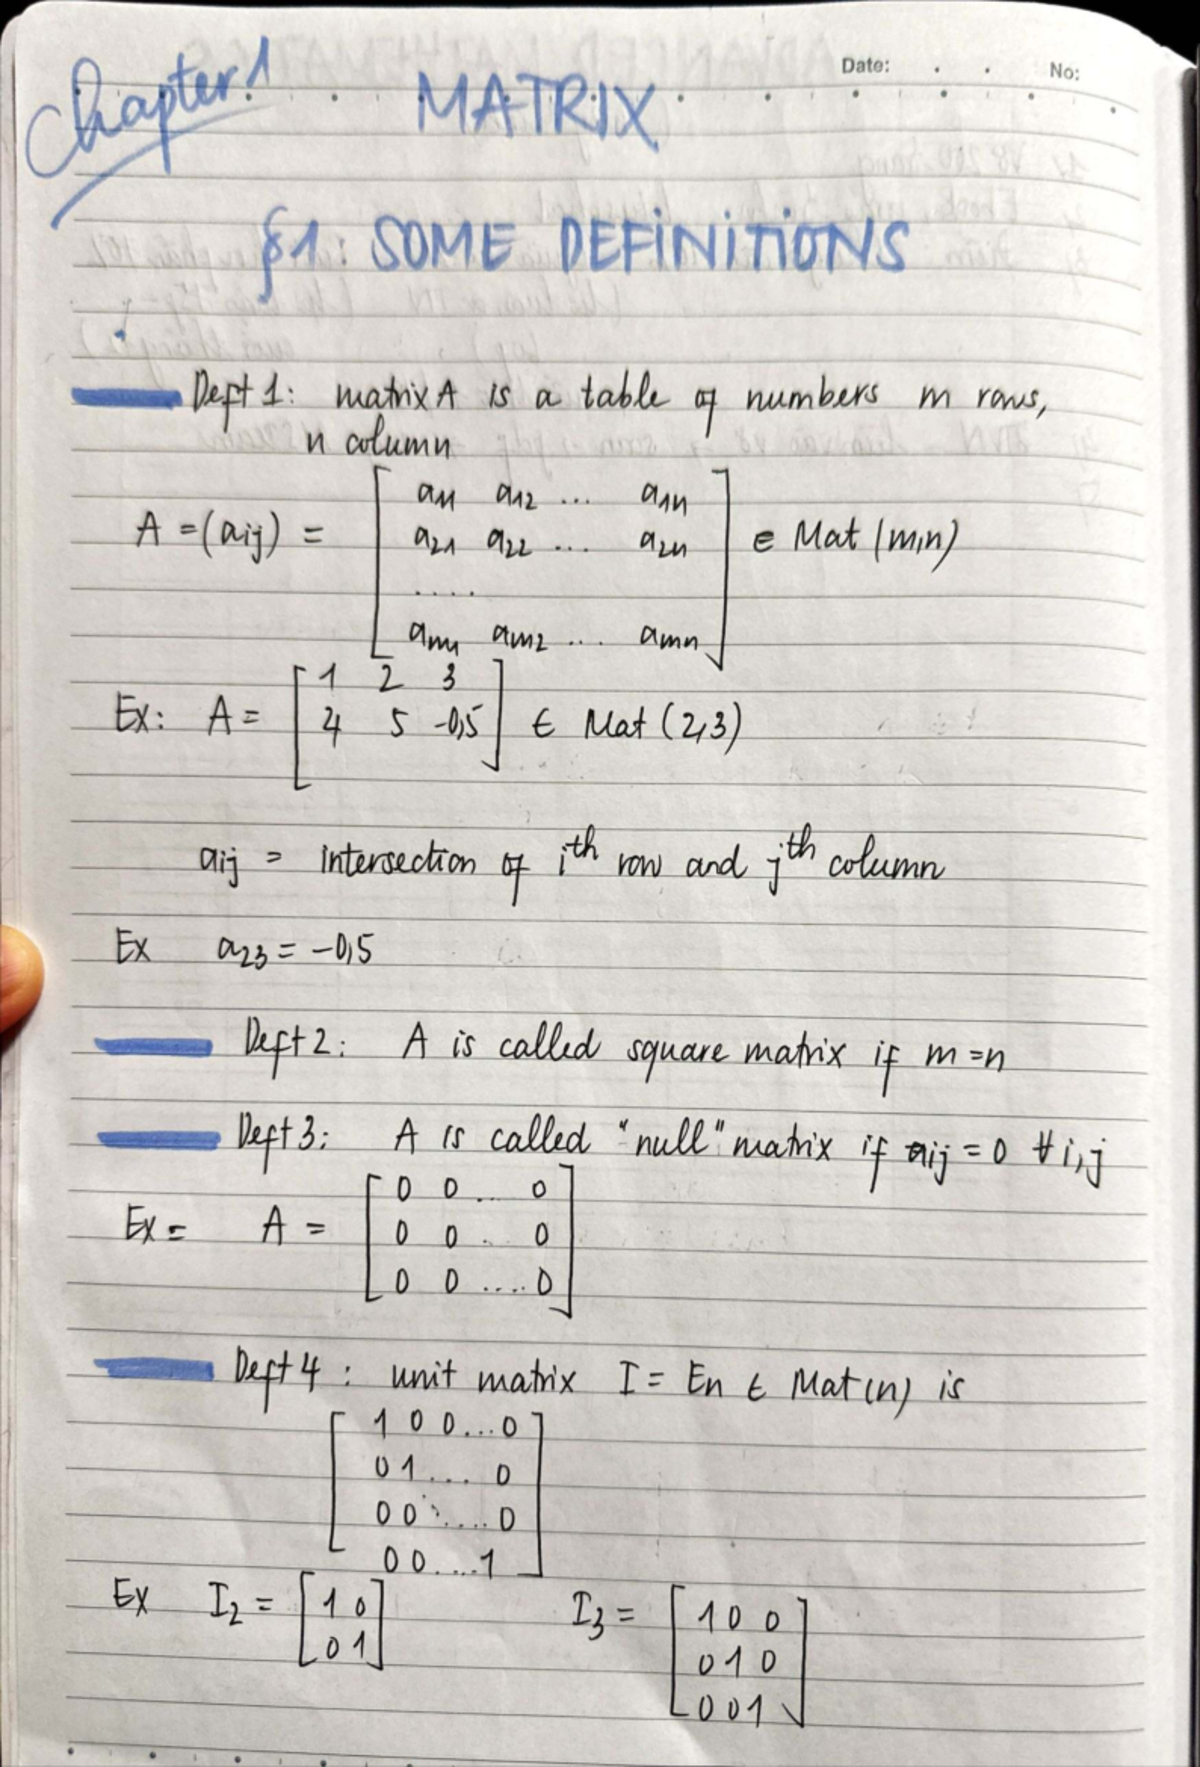 Chapter 1
MATRIX
Date: . .
No:
§1. SOME DEFINITIONS
Deft 1: matrix A is a table of numbers m rows,
n column
A = (aij) = [ a11 a12 ... a1n
a21 a22 ... a2n
....
am1 am2 ... amn ] ∈ Mat (m,n)
Ex: A = [ 1 2 3
4 5 -0,5 ] ∈ Mat (2,3)
aij = intersection of ith row and jth column
Ex a23 = -0,5
Deft 2: A is called square matrix if m = n
Deft 3: A is called "null" matrix if aij = 0 ∀ i,j
Ex = A = [ 0 0 ... 0
0 0 . 0
0 0 .... 0 ]
Deft 4 : unit matrix I = En ∈ Mat (n) is
[ 1 0 0 ... 0
0 1 .... 0
0 0 ⋱ .... 0
0 0 .... 1 ]
Ex I2 = [ 1 0
0 1 ]
I3 = [ 1 0 0
0 1 0
0 0 1 ]